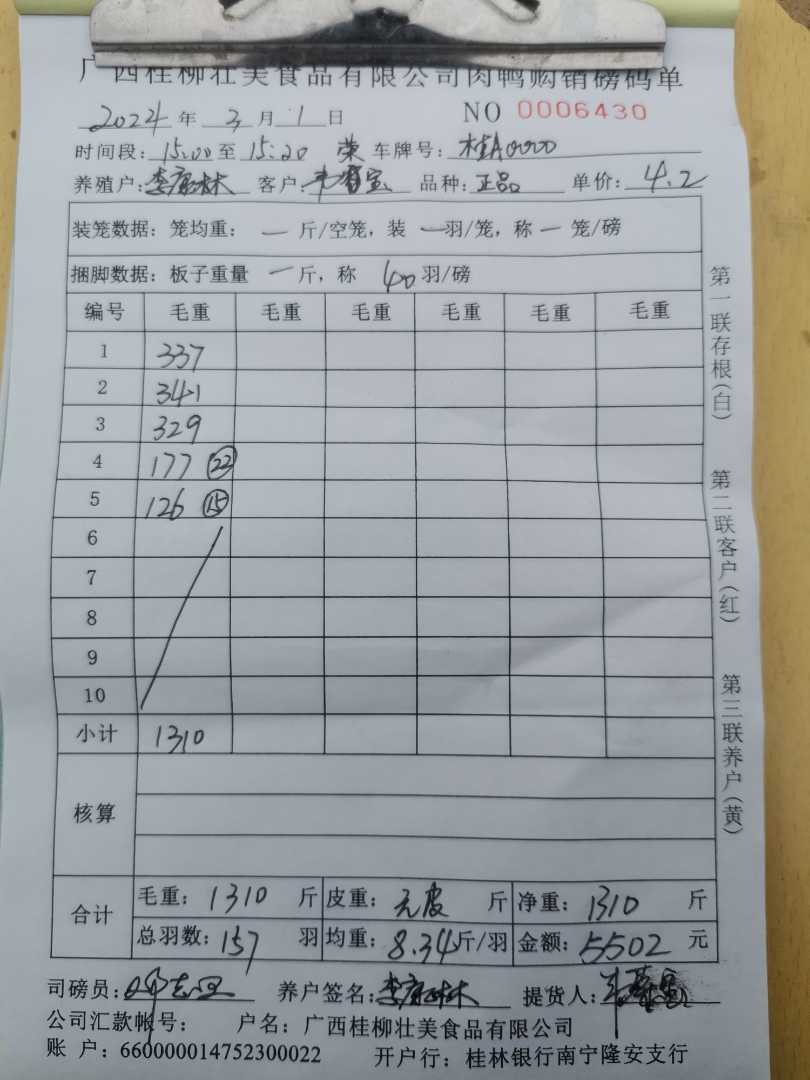 广西桂柳壮美食品有限公司肉鸭购销磅码单
2024年3月1日 NO 0006430
时间段:15:00至15:20 荣 车牌号:桂A0000
养殖户:李 林 客户: 宝 品种:正品 单价:4.2
装笼数据:笼均重:一斤/空笼,装一羽/笼,称一笼/磅
捆脚数据:板子重量一斤,称40羽/磅
编号 毛重 毛重 毛重 毛重 毛重 毛重
1 337
2 341
3 329
4 177 22
5 126 15
6
7
8
9
10
小计 1310
核算
合计 毛重:1310斤 皮重:无皮斤 净重:1310斤
总羽数:157羽 均重:8.34斤/羽 金额:5502元
司磅员: 养户签名:李 林 提货人:
公司汇款帐号: 户名:广西桂柳壮美食品有限公司
账 户:660000014752300022 开户行:桂林银行南宁隆安支行
第一联存根(白)
第二联客户(红)
第三联养户(黄)